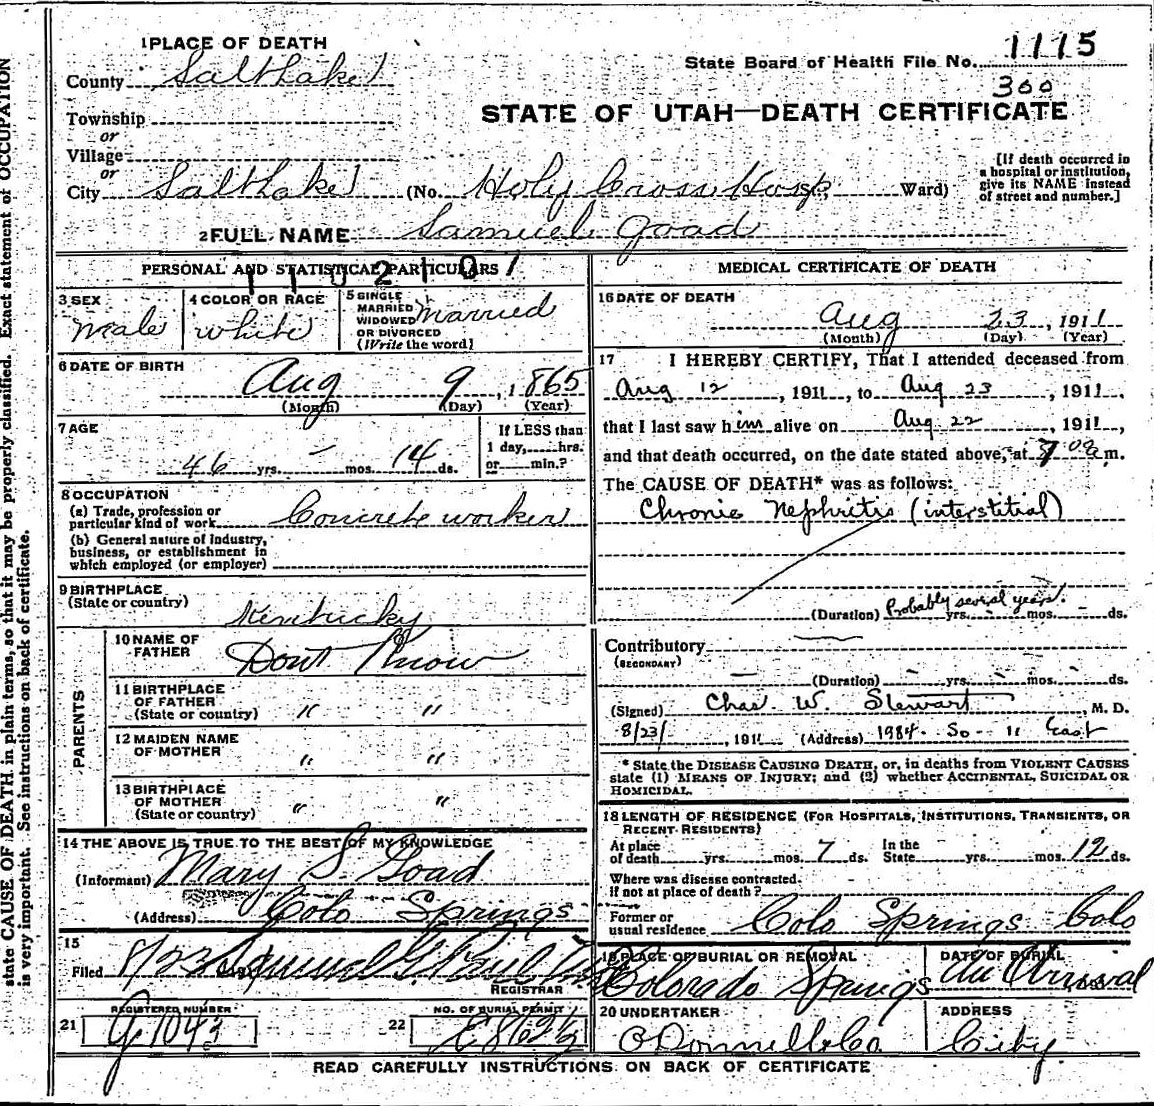 state CAUSE OF DEATH in plain terms, so that it may be properly classified. Exact statement of OCCUPATION
is very important. See instructions on back of certificate.
1 PLACE OF DEATH
County Salt Lake
Township
or
Village
or
City Salt Lake (No. Holy Cross Hosp. Ward)
State Board of Health File No. 1115
300
STATE OF UTAH—DEATH CERTIFICATE
[If death occurred in
a hospital or institution,
give its NAME instead
of street and number.]
2 FULL NAME Samuel Goad
PERSONAL AND STATISTICAL PARTICULARS
3 SEX
Male
4 COLOR OR RACE
White
5 SINGLE
MARRIED
WIDOWED
OR DIVORCED
(Write the word)
Married
6 DATE OF BIRTH
Aug 9, 1865
(Month) (Day) (Year)
7 AGE
46 yrs. – mos. 14 ds.
If LESS than
1 day, hrs.
or min.?
8 OCCUPATION
(a) Trade, profession or
particular kind of work Concrete worker
(b) General nature of industry,
business, or establishment in
which employed (or employer)
9 BIRTHPLACE
(State or country)
Kentucky
PARENTS
10 NAME OF
FATHER
Dont Know
11 BIRTHPLACE
OF FATHER
(State or country) " "
12 MAIDEN NAME
OF MOTHER
" "
13 BIRTHPLACE
OF MOTHER
(State or country) " "
14 THE ABOVE IS TRUE TO THE BEST OF MY KNOWLEDGE
(Informant) Mary S. Goad
(Address) Colo Springs
15
Filed 8/23
REGISTRAR
21
REGISTERED NUMBER
G 1043
22
NO. OF BURIAL PERMIT
MEDICAL CERTIFICATE OF DEATH
16 DATE OF DEATH
Aug 23, 1911
(Month) (Day) (Year)
17 I HEREBY CERTIFY, That I attended deceased from
Aug 12, 1911, to Aug 23, 1911,
that I last saw him alive on Aug 22, 1911,
and that death occurred, on the date stated above, at 7 00 a.m.
The CAUSE OF DEATH* was as follows:
Chronic Nephritis (interstitial)
(Duration) Probably several years. yrs. – mos. – ds.
Contributory
(SECONDARY)
(Duration) – yrs. – mos. – ds.
(Signed) Chas. W. Stewart, M. D.
8/23/, 1911 (Address) 1984 - So - 11 East
* State the DISEASE CAUSING DEATH, or, in deaths from VIOLENT CAUSES
state (1) MEANS OF INJURY; and (2) whether ACCIDENTAL, SUICIDAL OR
HOMICIDAL.
18 LENGTH OF RESIDENCE (FOR HOSPITALS, INSTITUTIONS, TRANSIENTS, OR
RECENT RESIDENTS)
At place
of death yrs. mos. 7 ds.
In the
State yrs. mos. 12 ds.
Where was disease contracted.
if not at place of death?
Former or
usual residence Colo Springs Colo
19 PLACE OF BURIAL OR REMOVAL
Colorado Springs
DATE OF BURIAL
On Arrival
20 UNDERTAKER
O'Donnell & Co.
ADDRESS
City
READ CAREFULLY INSTRUCTIONS ON BACK OF CERTIFICATE